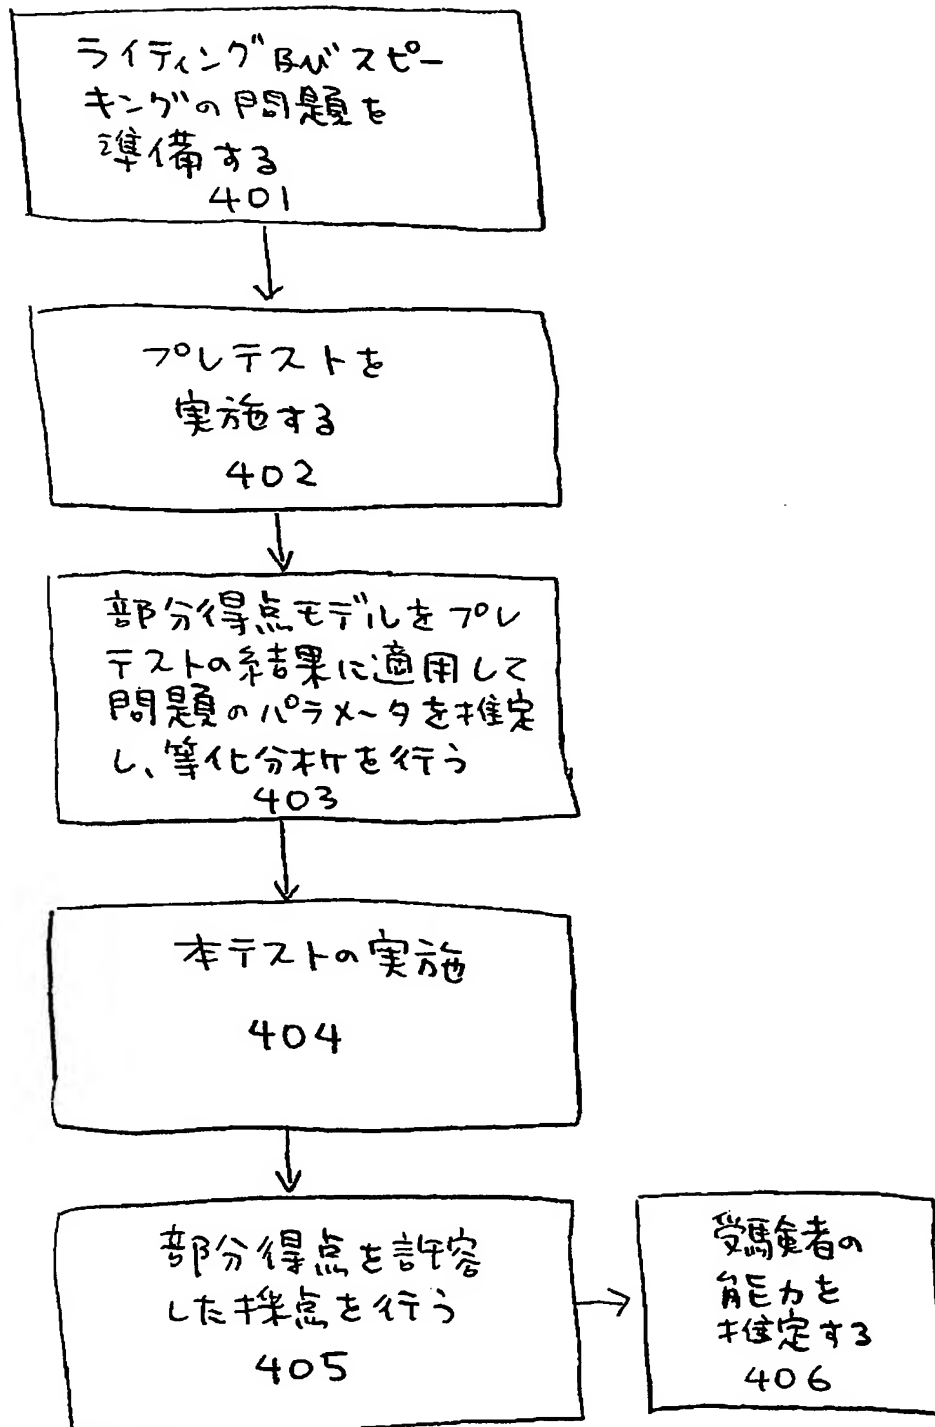 ライティング及びスピー
キングの問題を
準備する
401
プレテストを
実施する
402
部分得点モデルをプレ
テストの結果に適用して
問題のパラメータを推定
し、等化分析を行う
403
本テストの実施
404
部分得点を許容
した採点を行う
405
受験者の
能力を
推定する
406